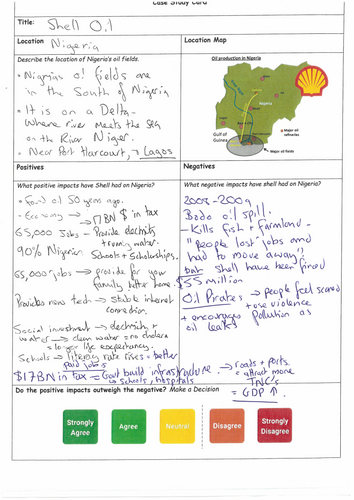 Case Study Card
Title: Shell Oil
Location Nigeria
Describe the location of Nigeria's oil fields.
• Nigrias oil fields are
in the South of Nigeria
• It is on a Delta-
Where river meets the Sea
on the River Niger.
• Near Port Harcourt, → Lagos
Location Map
Oil production in Nigeria
Nigeria
Gulf of
Guinea
Major oil
refineries
Major oil fields
Positives
What positive impacts have Shell had on Nigeria?
• Found oil 50 years ago.
• Economy → 17BN $ in tax
65,000 Jobs - Provide electricity
+ running water.
90% Nigerian Schools + Scholarships.
65,000 jobs → provide for your
family better home.
Provides new tech → Stable internet
connection.
Social investment → electricity +
water → clean water = no cholera
= longer life expectancy.
Schools → literacy rate rises = better
paid jobs
$17BN in tax = Govt build infrastructure
↳ schools, hospitals
Negatives
What negative impacts have shell had on Nigeria?
2008-2009
Bodo oil spill.
- Kills fish + farmland.
- "people lost jobs and
had to move away";
but shell have been fined
$55 million
Oil Pirates → people feel scared
+ use violence
+ encourages Pollution as
oil leaks
→ roads + ports
= attract more
TNC's
= GDP ↑.
Do the positive impacts outweigh the negative? Make a Decision
Strongly
Agree
Agree
Neutral
Disagree
Strongly
Disagree